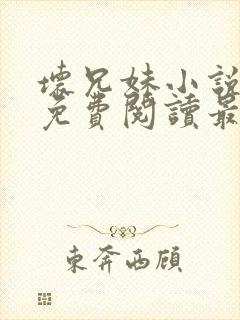 壞兄妹小說
免費閱讀最
東奔西顧